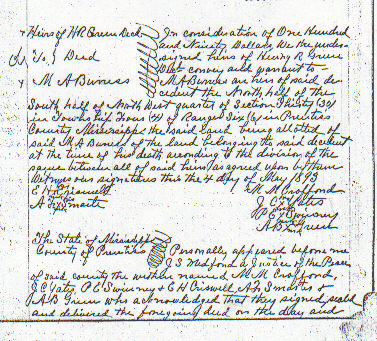 Heirs of H R Green Decd In consideration of One Hundred
and Ninety Dollars We the under-
To } Deed signed heirs of Henry R Green
Decd convey and warrant to
M A Burness M A Burness an heir of said de-
cedent the North half of the
South half of North West quarter of Section Thirty (30)
in Township Four (4) of Range Six (6) in Prentiss
County Mississippi the said land being allotted to
said M A Burness of the land belonging to said decedent
at the time of his death according to the division of the
same between all of said heirs as agreed upon by them
Witness our signatures this the 4 day of May 1893
E H Criswell M M Crofford
A F Smatts J C Yates
P E Swinney
A B Green
The State of Mississippi
County of Prentiss Personally appeared before me
J S Medford a Justice of the Peace
of said county the within named M M Crofford,
J C Yates, P E Swinney & E H Criswell, A F Smatts &
A B Green who acknowledged that they signed seald
and delivered the foregoing deed on the day and